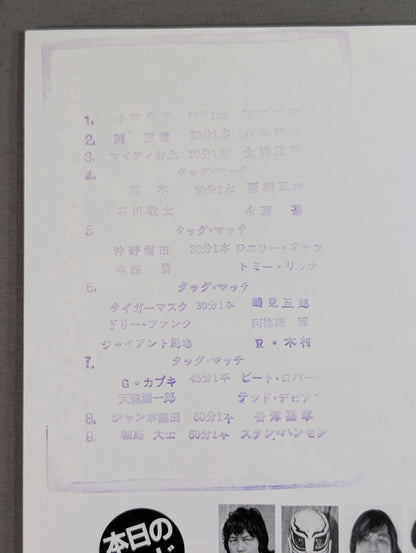 1. 15分1本
2. 渕 正信 20分1本 ハル薗田
3. マイティ井上 20分1本 大熊元司
4. タッグ・マッチ
高木 30分1本 栗栖正伸
石川敬士 永源 遙
5 タッグ・マッチ
仲野信市 30分1本 ジェリー・オーツ
寺西 勇 トミー・リッチ
6. タッグ・マッチ
タイガーマスク 30分1本 鶴見五郎
ドリー・ファンク 阿修羅 原
ジャイアント馬場 R・木村
7. タッグ・マッチ
G・カブキ 45分1本 ピート・ロバーツ
天龍源一郎 テッド・デビア
8. ジャンボ鶴田 60分1本 谷津嘉章
9. 輪島 大士 60分1本 スタン・ハンセン
本日の